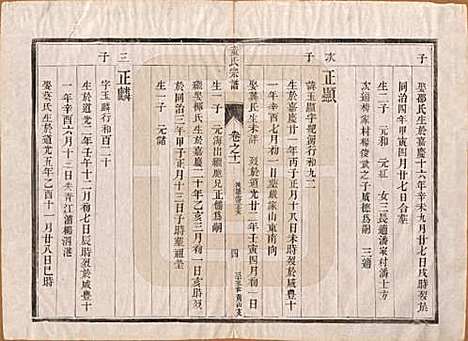 子
娶鄒氏生於嘉慶十六年辛未九月廿七日戌時歿於
同治四年甲寅四月廿七日合葬
生二子 元和 元紅 女三長適潘家村潘士方
次適 家村楊俊武之子成德為嗣 三適
次
子 正顯
諱玉顯字 朝 行和九二
生於嘉慶廿一年丙子正月十八日未時歿於咸豐十
一年辛酉七月初一日葬嚴家山東南向
娶龔氏生 未詳 歿於道光廿二年壬寅四月初一日
生一子 元海出繼胞兄正 為嗣
繼娶柳氏生於嘉慶二十年乙亥三月初九日亥時歿
於同治三年甲子正月十三日子時葬祖塋
生一子 元諸
三
子 正麟
字玉麟行和百二十
生於道光二年壬午十二月初七日辰時歿於咸豐十
一年辛酉六月十三日未時 青江 潘柳泗港
娶葉氏生於道光五年乙酉十一月廿八日巳時
氏宗譜
卷之十一
四